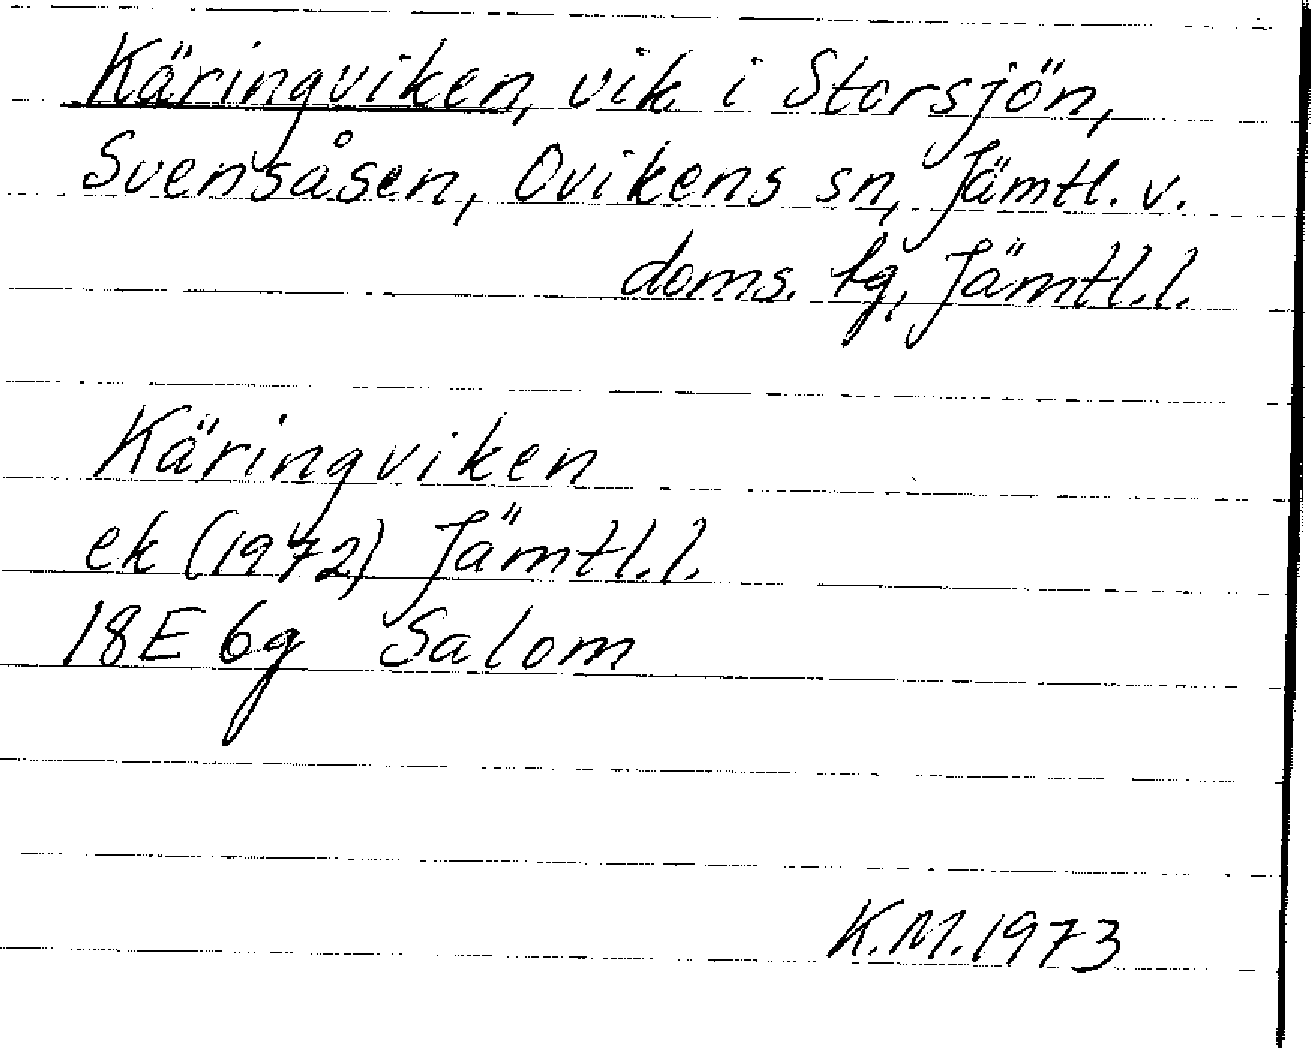 Käringviken, vik i Storsjön,
Svensåsen, Ovikens sn, Jämtl. v.
doms. tg, Jämtl.l.
Käringviken
ek (1972) Jämtl.l.
18E 6g Salom
K.M.1973